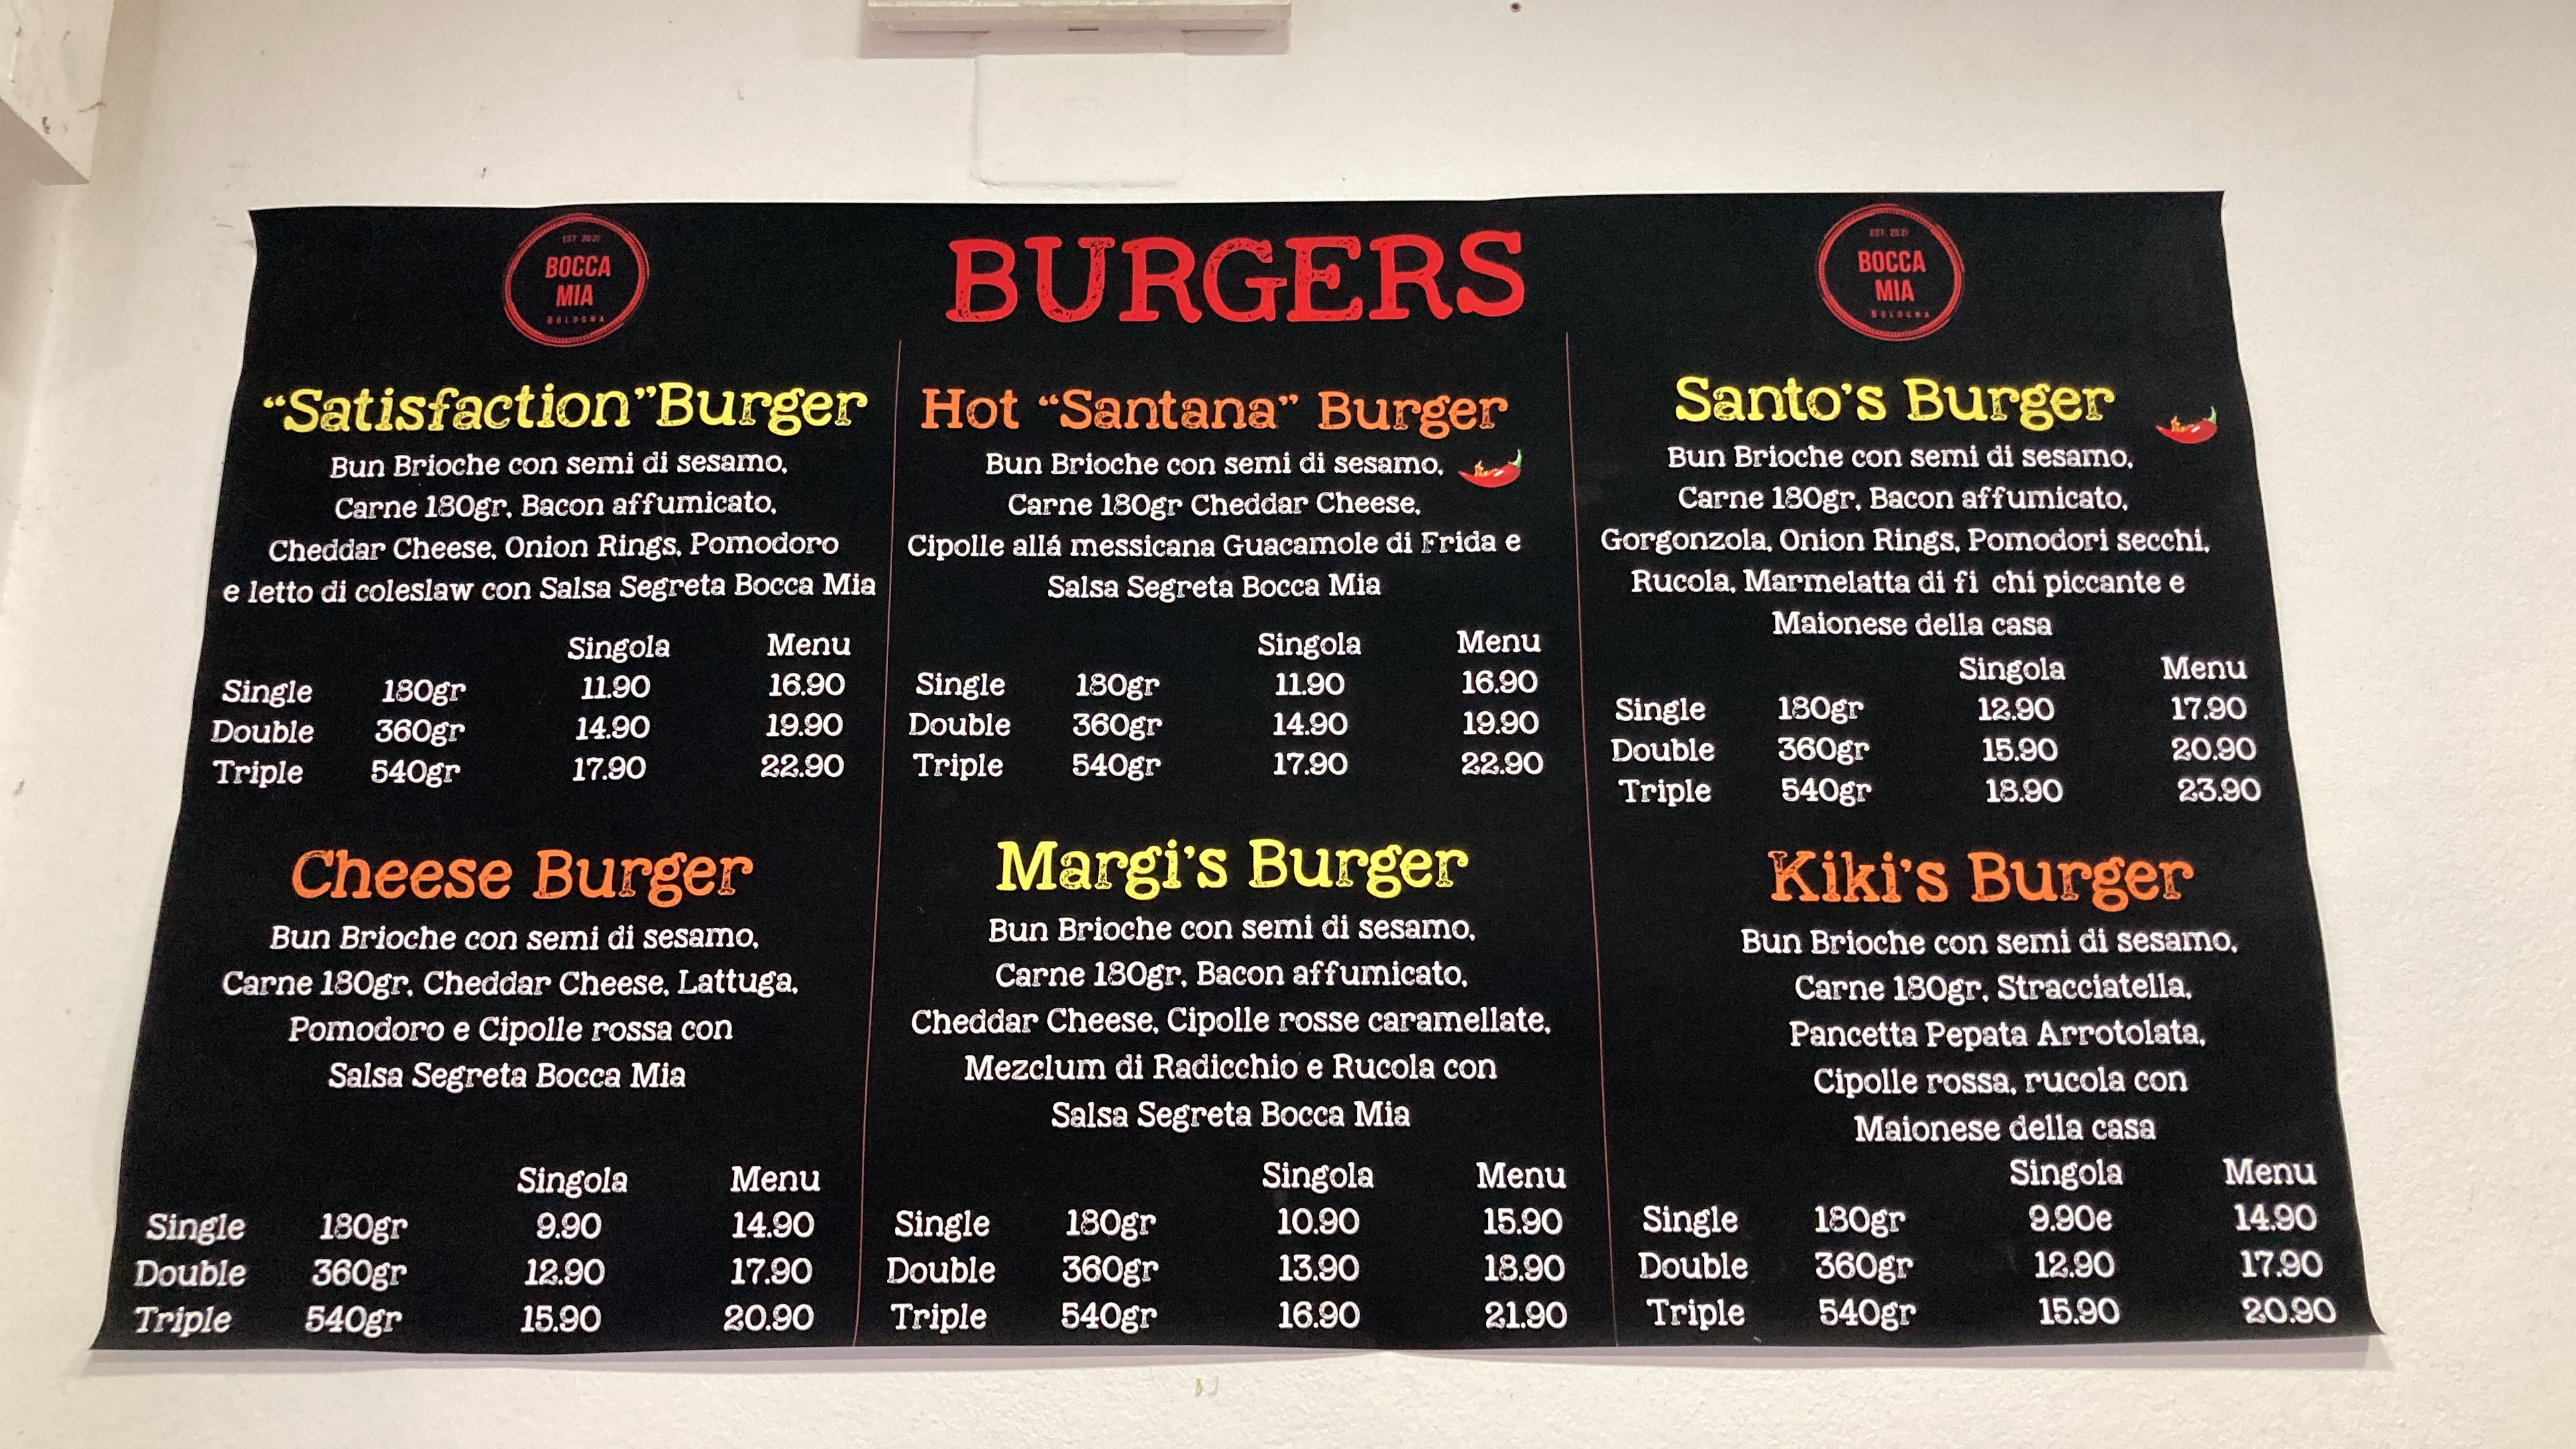 EST. 2021
BOCCA
MIA
BOLOGNA
BURGERS
EST. 2021
BOCCA
MIA
BOLOGNA
“Satisfaction”Burger
Bun Brioche con semi di sesamo,
Carne 180gr, Bacon affumicato,
Cheddar Cheese, Onion Rings, Pomodoro
e letto di coleslaw con Salsa Segreta Bocca Mia
Singola Menu
Single 180gr 11.90 16.90
Double 360gr 14.90 19.90
Triple 540gr 17.90 22.90
Hot “Santana” Burger
Bun Brioche con semi di sesamo,
Carne 180gr Cheddar Cheese,
Cipolle allá messicana Guacamole di Frida e
Salsa Segreta Bocca Mia
Singola Menu
Single 180gr 11.90 16.90
Double 360gr 14.90 19.90
Triple 540gr 17.90 22.90
Santo’s Burger
Bun Brioche con semi di sesamo,
Carne 180gr, Bacon affumicato,
Gorgonzola, Onion Rings, Pomodori secchi,
Rucola, Marmelatta di fi chi piccante e
Maionese della casa
Singola Menu
Single 180gr 12.90 17.90
Double 360gr 15.90 20.90
Triple 540gr 18.90 23.90
Cheese Burger
Bun Brioche con semi di sesamo,
Carne 180gr, Cheddar Cheese, Lattuga,
Pomodoro e Cipolle rossa con
Salsa Segreta Bocca Mia
Singola Menu
Single 180gr 9.90 14.90
Double 360gr 12.90 17.90
Triple 540gr 15.90 20.90
Margi’s Burger
Bun Brioche con semi di sesamo,
Carne 180gr, Bacon affumicato,
Cheddar Cheese, Cipolle rosse caramellate,
Mezclum di Radicchio e Rucola con
Salsa Segreta Bocca Mia
Singola Menu
Single 180gr 10.90 15.90
Double 360gr 13.90 18.90
Triple 540gr 16.90 21.90
Kiki’s Burger
Bun Brioche con semi di sesamo,
Carne 180gr, Stracciatella,
Pancetta Pepata Arrotolata,
Cipolle rossa, rucola con
Maionese della casa
Singola Menu
Single 180gr 9.90e 14.90
Double 360gr 12.90 17.90
Triple 540gr 15.90 20.90